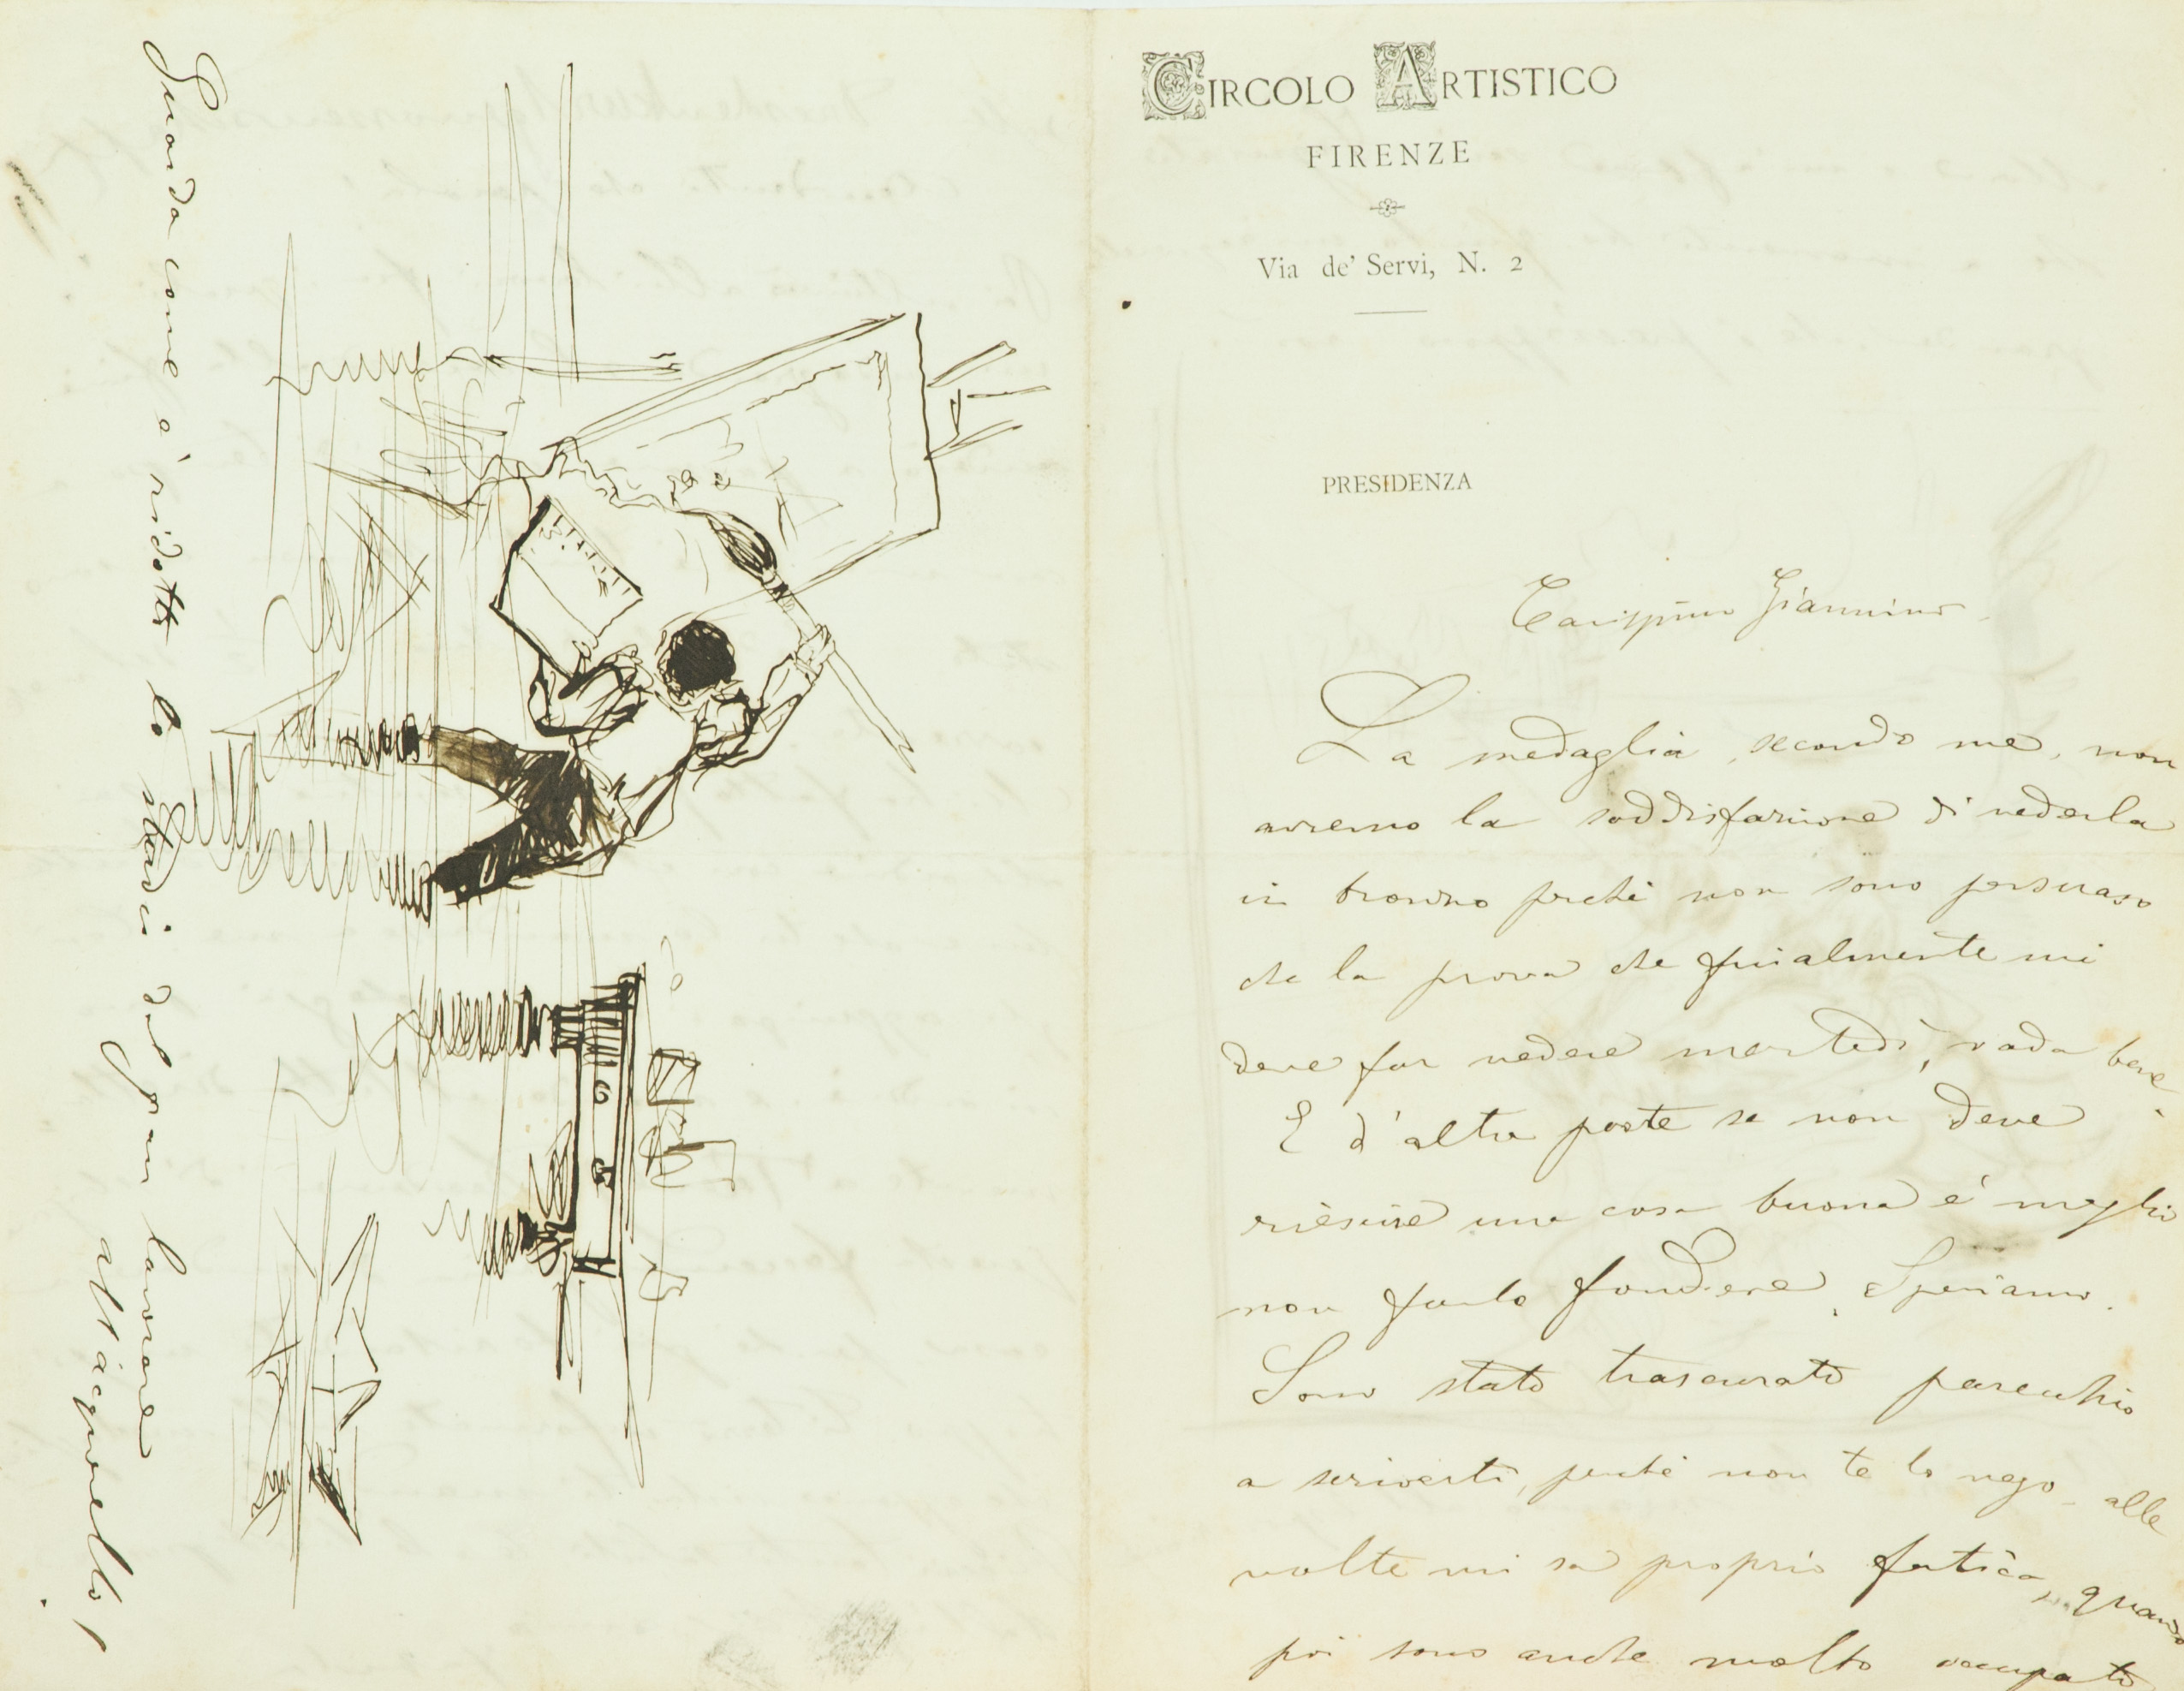 CIRCOLO ARTISTICO
FIRENZE
Via de' Servi, N. 2
PRESIDENZA
Carissimo Giannino
La medaglia, secondo me, non
avremo la soddisfazione di vederla
in bronzo perché non sono persuaso
che la prova che finalmente mi
deve far vedere martedì, vada bene.
E d'altra parte se non deve
riescire una cosa buona é meglio
non farlo fondere. Speriamo.
Sono stato trascurato parecchio
a scriverti, perché non te lo nego alle
volte mi sa proprio fatica, quando
poi sono anche molto occupato
Guarda come è ridotto lo studio dal gran lavorare
all'acquerello!